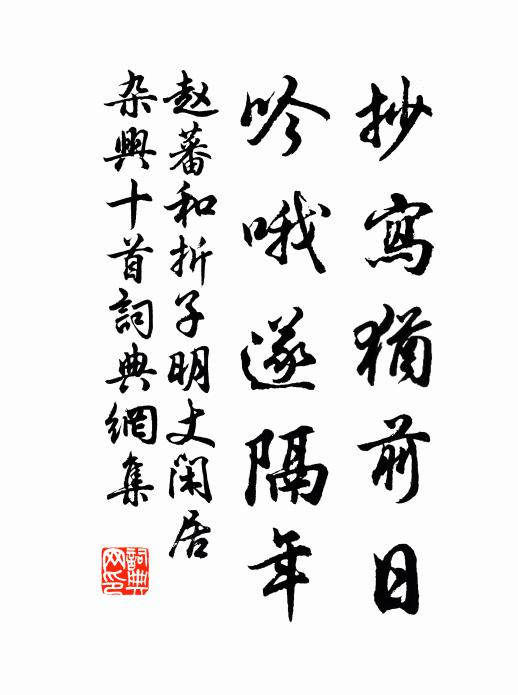 抄寫猶前日
吟哦遂隔年
赵蕃和折子明丈閑居
杂興十首詞典網集
詞典网印